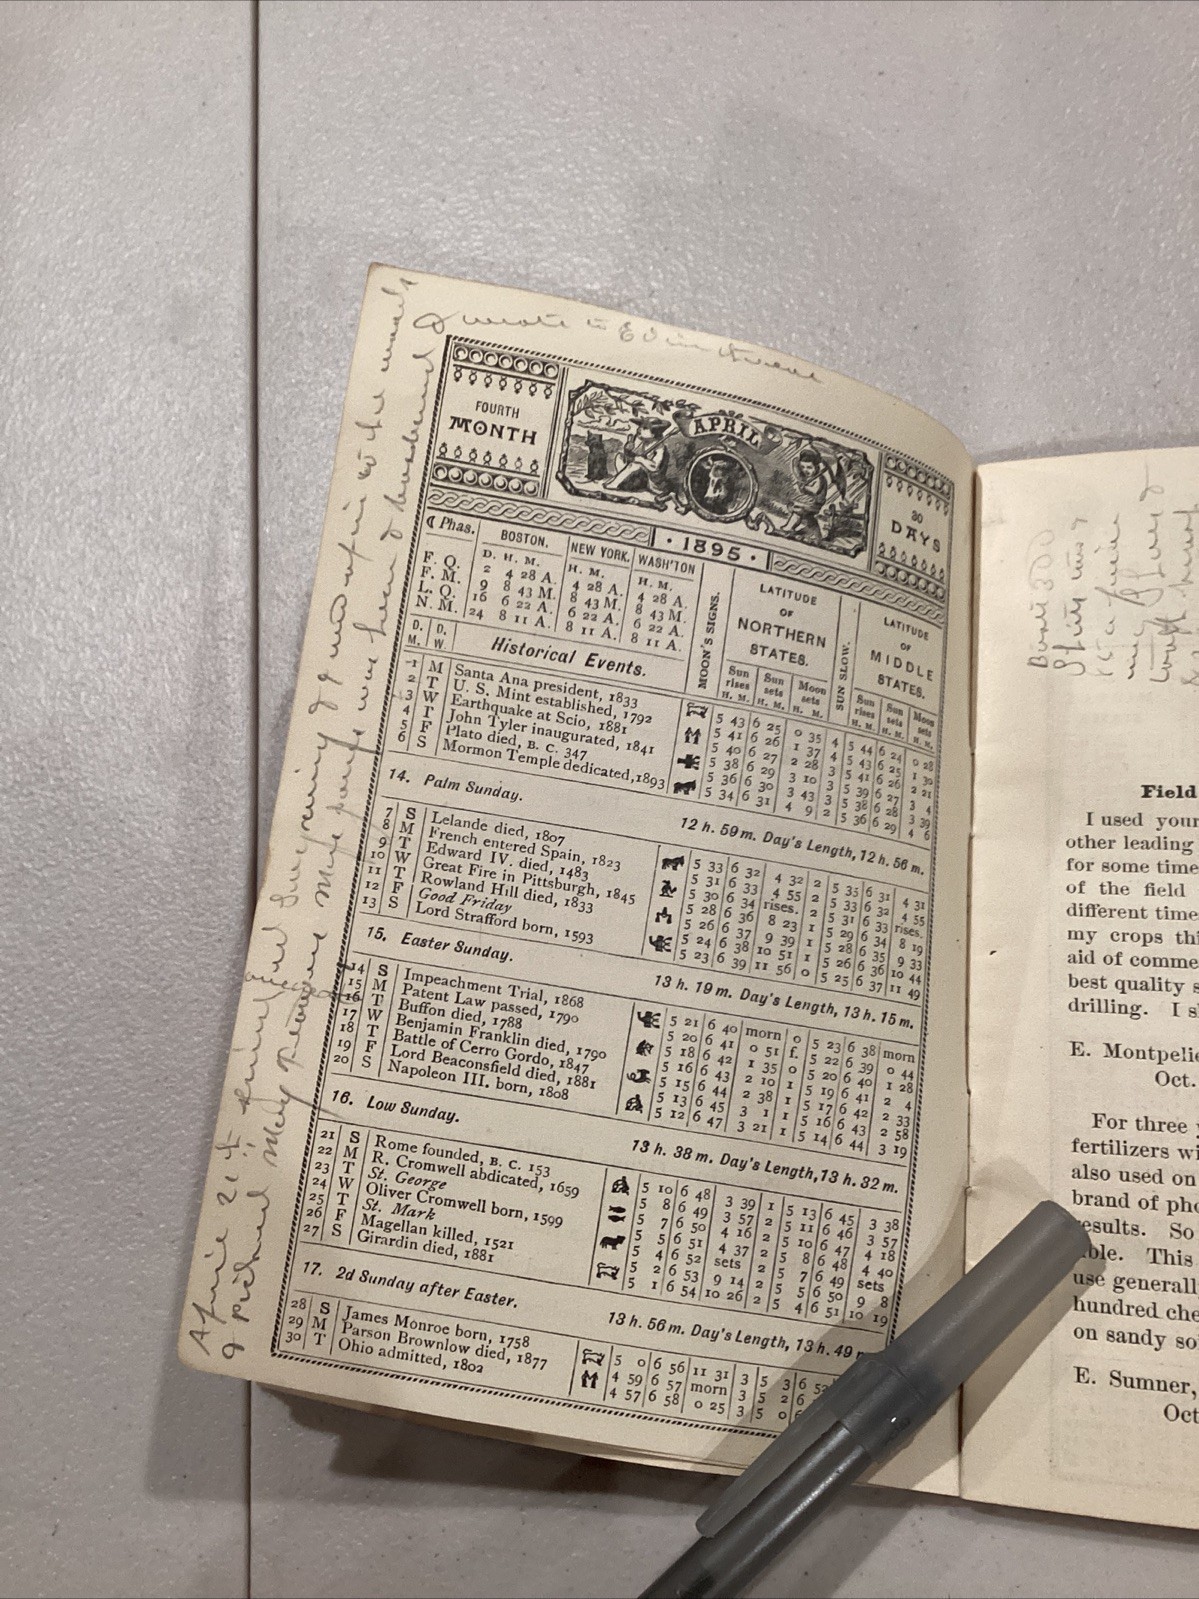 I wrote to
FOURTH
MONTH
APRIL
30
DAYS
· 1895 ·
☾ Phas. BOSTON. NEW YORK. WASH'TON
D. H. M. H. M. H. M.
F. Q. 2 4 28 A. 4 28 A. 4 28 A.
F. M. 9 8 43 M. 8 43 M. 8 43 M.
L. Q. 16 6 22 A. 6 22 A. 6 22 A.
N. M. 24 8 11 A. 8 11 A. 8 11 A.
MOON'S SIGNS.
LATITUDE
OF
NORTHERN
STATES.
SUN SLOW.
LATITUDE
OF
MIDDLE
STATES.
D. M. D. W. Historical Events.
Sun rises Sun sets Moon sets Sun rises Sun sets Moon sets
H. M. H. M. H. M. H. M. H. M. H. M.
1 M Santa Ana president, 1833 5 43 6 25 0 35 4 5 44 6 24 0 28
2 T U. S. Mint established, 1792 5 41 6 26 1 37 4 5 43 6 25 1 30
3 W Earthquake at Scio, 1881 5 40 6 27 2 28 3 5 41 6 26 2 21
4 T John Tyler inaugurated, 1841 5 38 6 29 3 10 3 5 39 6 27 3 4
5 F Plato died, B. C. 347 5 36 6 30 3 43 3 5 38 6 28 3 39
6 S Mormon Temple dedicated, 1893 5 34 6 31 4 9 2 5 36 6 29 4 6
14. Palm Sunday. 12 h. 59 m. Day's Length, 12 h. 56 m.
7 S Lelande died, 1807 5 33 6 32 4 32 2 5 35 6 31 4 31
8 M French entered Spain, 1823 5 31 6 33 4 55 2 5 33 6 32 4 55
9 T Edward IV. died, 1483 5 30 6 34 rises. 2 5 31 6 33 rises.
10 W Great Fire in Pittsburgh, 1845 5 28 6 36 8 23 1 5 29 6 34 8 19
11 T Rowland Hill died, 1833 5 26 6 37 9 39 1 5 28 6 35 9 33
12 F Good Friday 5 24 6 38 10 51 1 5 26 6 36 10 44
13 S Lord Strafford born, 1593 5 23 6 39 11 56 0 5 25 6 37 11 49
15. Easter Sunday. 13 h. 19 m. Day's Length, 13 h. 15 m.
14 S Impeachment Trial, 1868 5 21 6 40 morn 0 5 23 6 38 morn
15 M Patent Law passed, 1790 5 20 6 41 0 51 f. 5 22 6 39 0 44
16 T Buffon died, 1788 5 18 6 42 1 35 0 5 20 6 40 1 28
17 W Benjamin Franklin died, 1790 5 16 6 43 2 10 1 5 19 6 41 2 4
18 T Battle of Cerro Gordo, 1847 5 15 6 44 2 38 1 5 17 6 42 2 33
19 F Lord Beaconsfield died, 1881 5 13 6 45 3 1 1 5 16 6 43 2 58
20 S Napoleon III. born, 1808 5 12 6 47 3 21 1 5 14 6 44 3 19
16. Low Sunday. 13 h. 38 m. Day's Length, 13 h. 32 m.
21 S Rome founded, B. C. 153 5 10 6 48 3 39 1 5 13 6 45 3 38
22 M R. Cromwell abdicated, 1659 5 8 6 49 3 57 2 5 11 6 46 3 57
23 T St. George 5 7 6 50 4 16 2 5 10 6 47 4 18
24 W Oliver Cromwell born, 1599 5 5 6 51 4 37 2 5 8 6 48 4 40
25 T St. Mark 5 4 6 52 sets 2 5 7 6 49 sets
26 F Magellan killed, 1521 5 2 6 53 9 14 2 5 5 6 50 9 8
27 S Girardin died, 1881 5 1 6 54 10 26 2 5 4 6 51 10 19
17. 2d Sunday after Easter. 13 h. 56 m. Day's Length, 13 h. 49
28 S James Monroe born, 1758 5 0 6 56 11 31 3 5 3 6
29 M Parson Brownlow died, 1877 4 59 6 57 morn 3 5 2 6
30 T Ohio admitted, 1802 4 57 6 58 0 25 3 5 0 6
April 21
I picked May flowers
Field
I used your
other leading
for some time
of the field
different time
my crops thi
aid of comme
best quality s
drilling. I s
E. Montpelie
Oct.
For three y
fertilizers wi
also used on
brand of pho
results. So
ble. This
use generall
hundred che
on sandy so
E. Sumner,
Oct